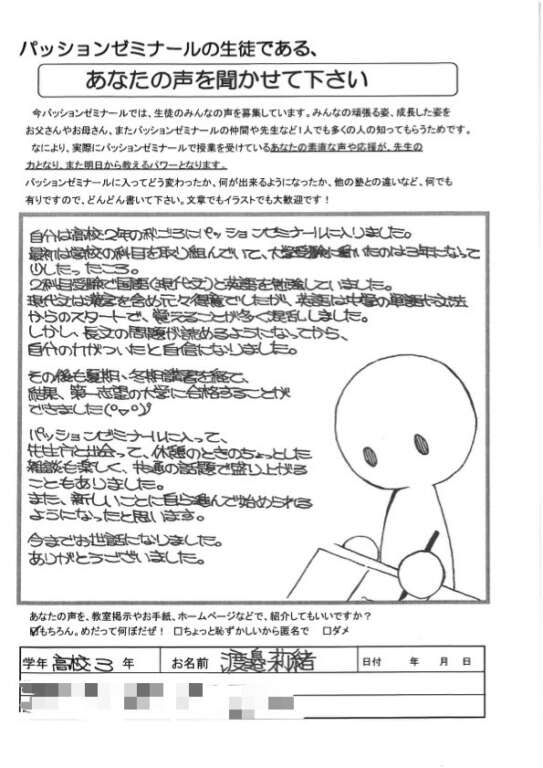 パッションゼミナールの生徒である、
あなたの声を聞かせて下さい
今パッションゼミナールでは、生徒のみんなの声を募集しています。みんなの頑張る姿、成長した姿を
お父さんやお母さん、またパッションゼミナールの仲間や先生など1人でも多くの人の知ってもらうためです。
なにより、実際にパッションゼミナールで授業を受けているあなたの素直な声や応援が、先生の
力となり、また明日から教えるパワーとなります。
パッションゼミナールに入ってどう変わったか、何が出来るようになったか、他の塾との違いなど、何でも
有りですので、どんどん書いて下さい。文章でもイラストでも大歓迎です！
自分は高校2年の秋ごろにパッションゼミナールに入りました。
最初は学校の科目を取り組んでいて、大学受験に動いたのは3年になって
少したったころ。
2科目受験で国語(現代文)と英語を勉強していました。
現代文は漢字を含め元々得意でしたが、英語は中学の単語や文法
からのスタートで、覚えることが多く混乱しました。
しかし、長文の問題が読めるようになってから、
自分の力がついたと自信になりました。
その後も夏期、冬期講習を経て、
結果、第一志望の大学に合格することが
できました(°▽°)!
パッションゼミナールに入って、
先生方と出会って、休憩のときのちょっとした
雑談も楽しく、共通の話題で盛り上がる
こともありました。
また、新しいことに自ら進んで始められる
ようになったと思います。
今までお世話になりました。
ありがとうございました。
あなたの声を、教室掲示やお手紙、ホームページなどで、紹介してもいいですか？
☑もちろん。めだって何ぼだぜ！ □ちょっと恥ずかしいから匿名で □ダメ
学年 高校3 年 お名前 渡邉莉緒 日付 年 月 日